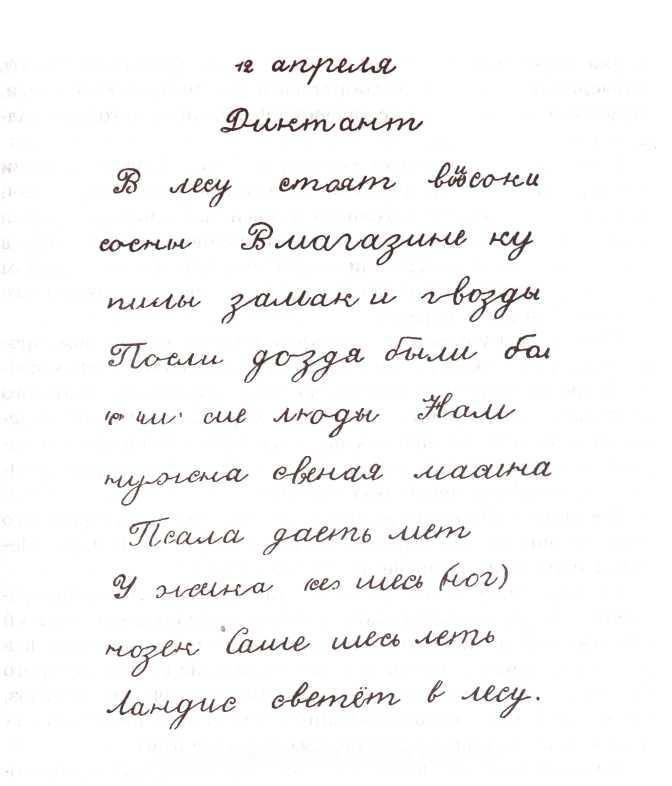 12 апреля
Диктант
В лесу стоят высоки
сосны В магазине ку
пилы замак и гвозды
Посли доздя были бол
сие люды Нам
нужна свеная масина
Псала даеть мет
У жука шесь (ног)
нозек Саше шесь леть
Ландис светёт в лесу.